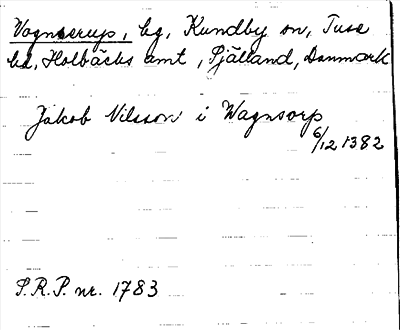 Vognserup, bg, Kundby sn, Tuse
hd, Holbäcks amt, Själland, Danmark
Jakob Nilsson i Wagnsorp
6/12 1382
S.R.P. nr. 1783